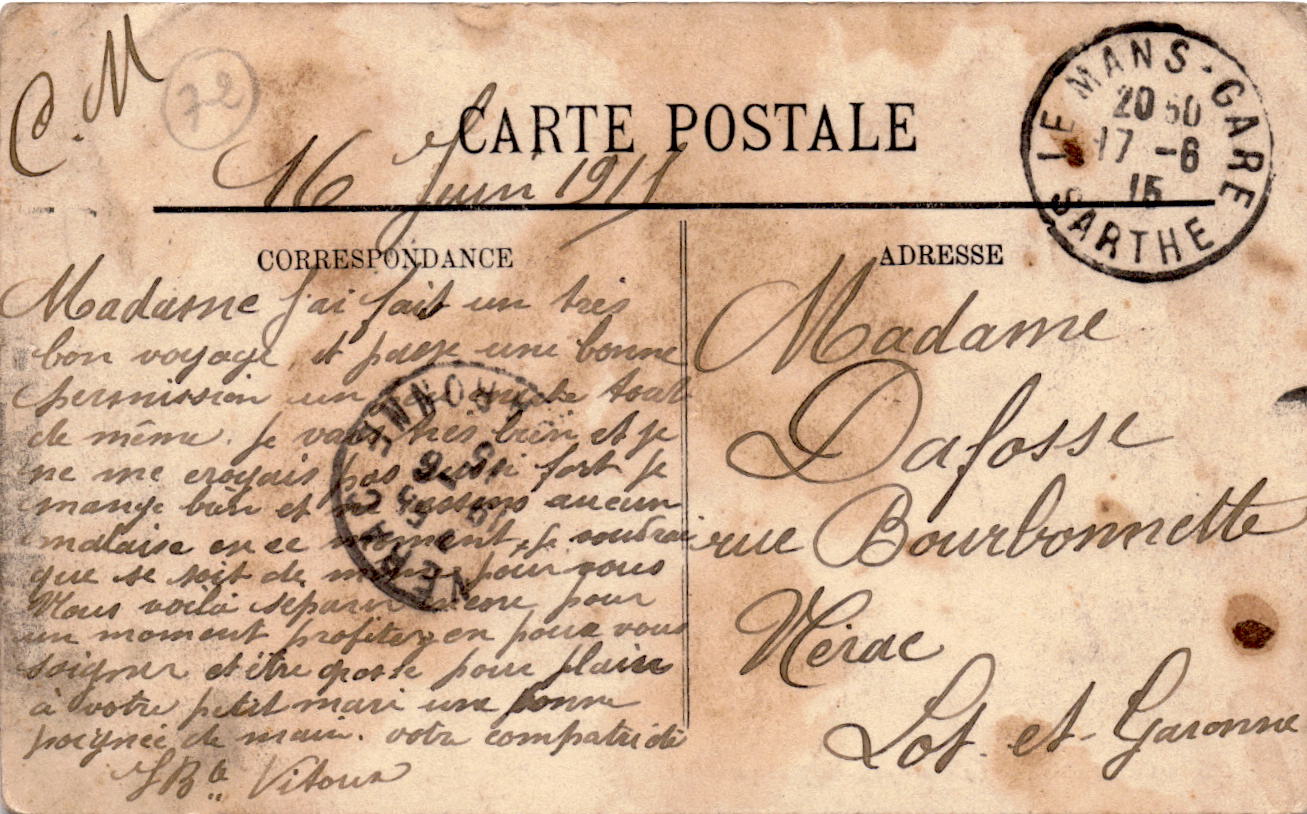 C. M
72
CARTE POSTALE
16 Juin 1915
LE MANS-GARE
20 50
17 -6
15
SARTHE
CORRESPONDANCE
Madame j'ai fait un très
bon voyage, et passe une bonne
permission un peu tout
de même. je vais très bien et je
ne me croyais pas aussi fort je
mange bien et ne ressens aucun
malaise en ce moment, je voudrai
que se soit de même pour vous
Nous voilà séparer encore pour
un moment profitez en pour vous
soigner et être grosse pour plaire
à votre petit mari une bonne
poignée de main. votre compatriote
JBte Vitoux
NERAC
GARONNE
ADRESSE
Madame
Dafosse
rue Bourbonnette
Nérac
Lot et Garonne